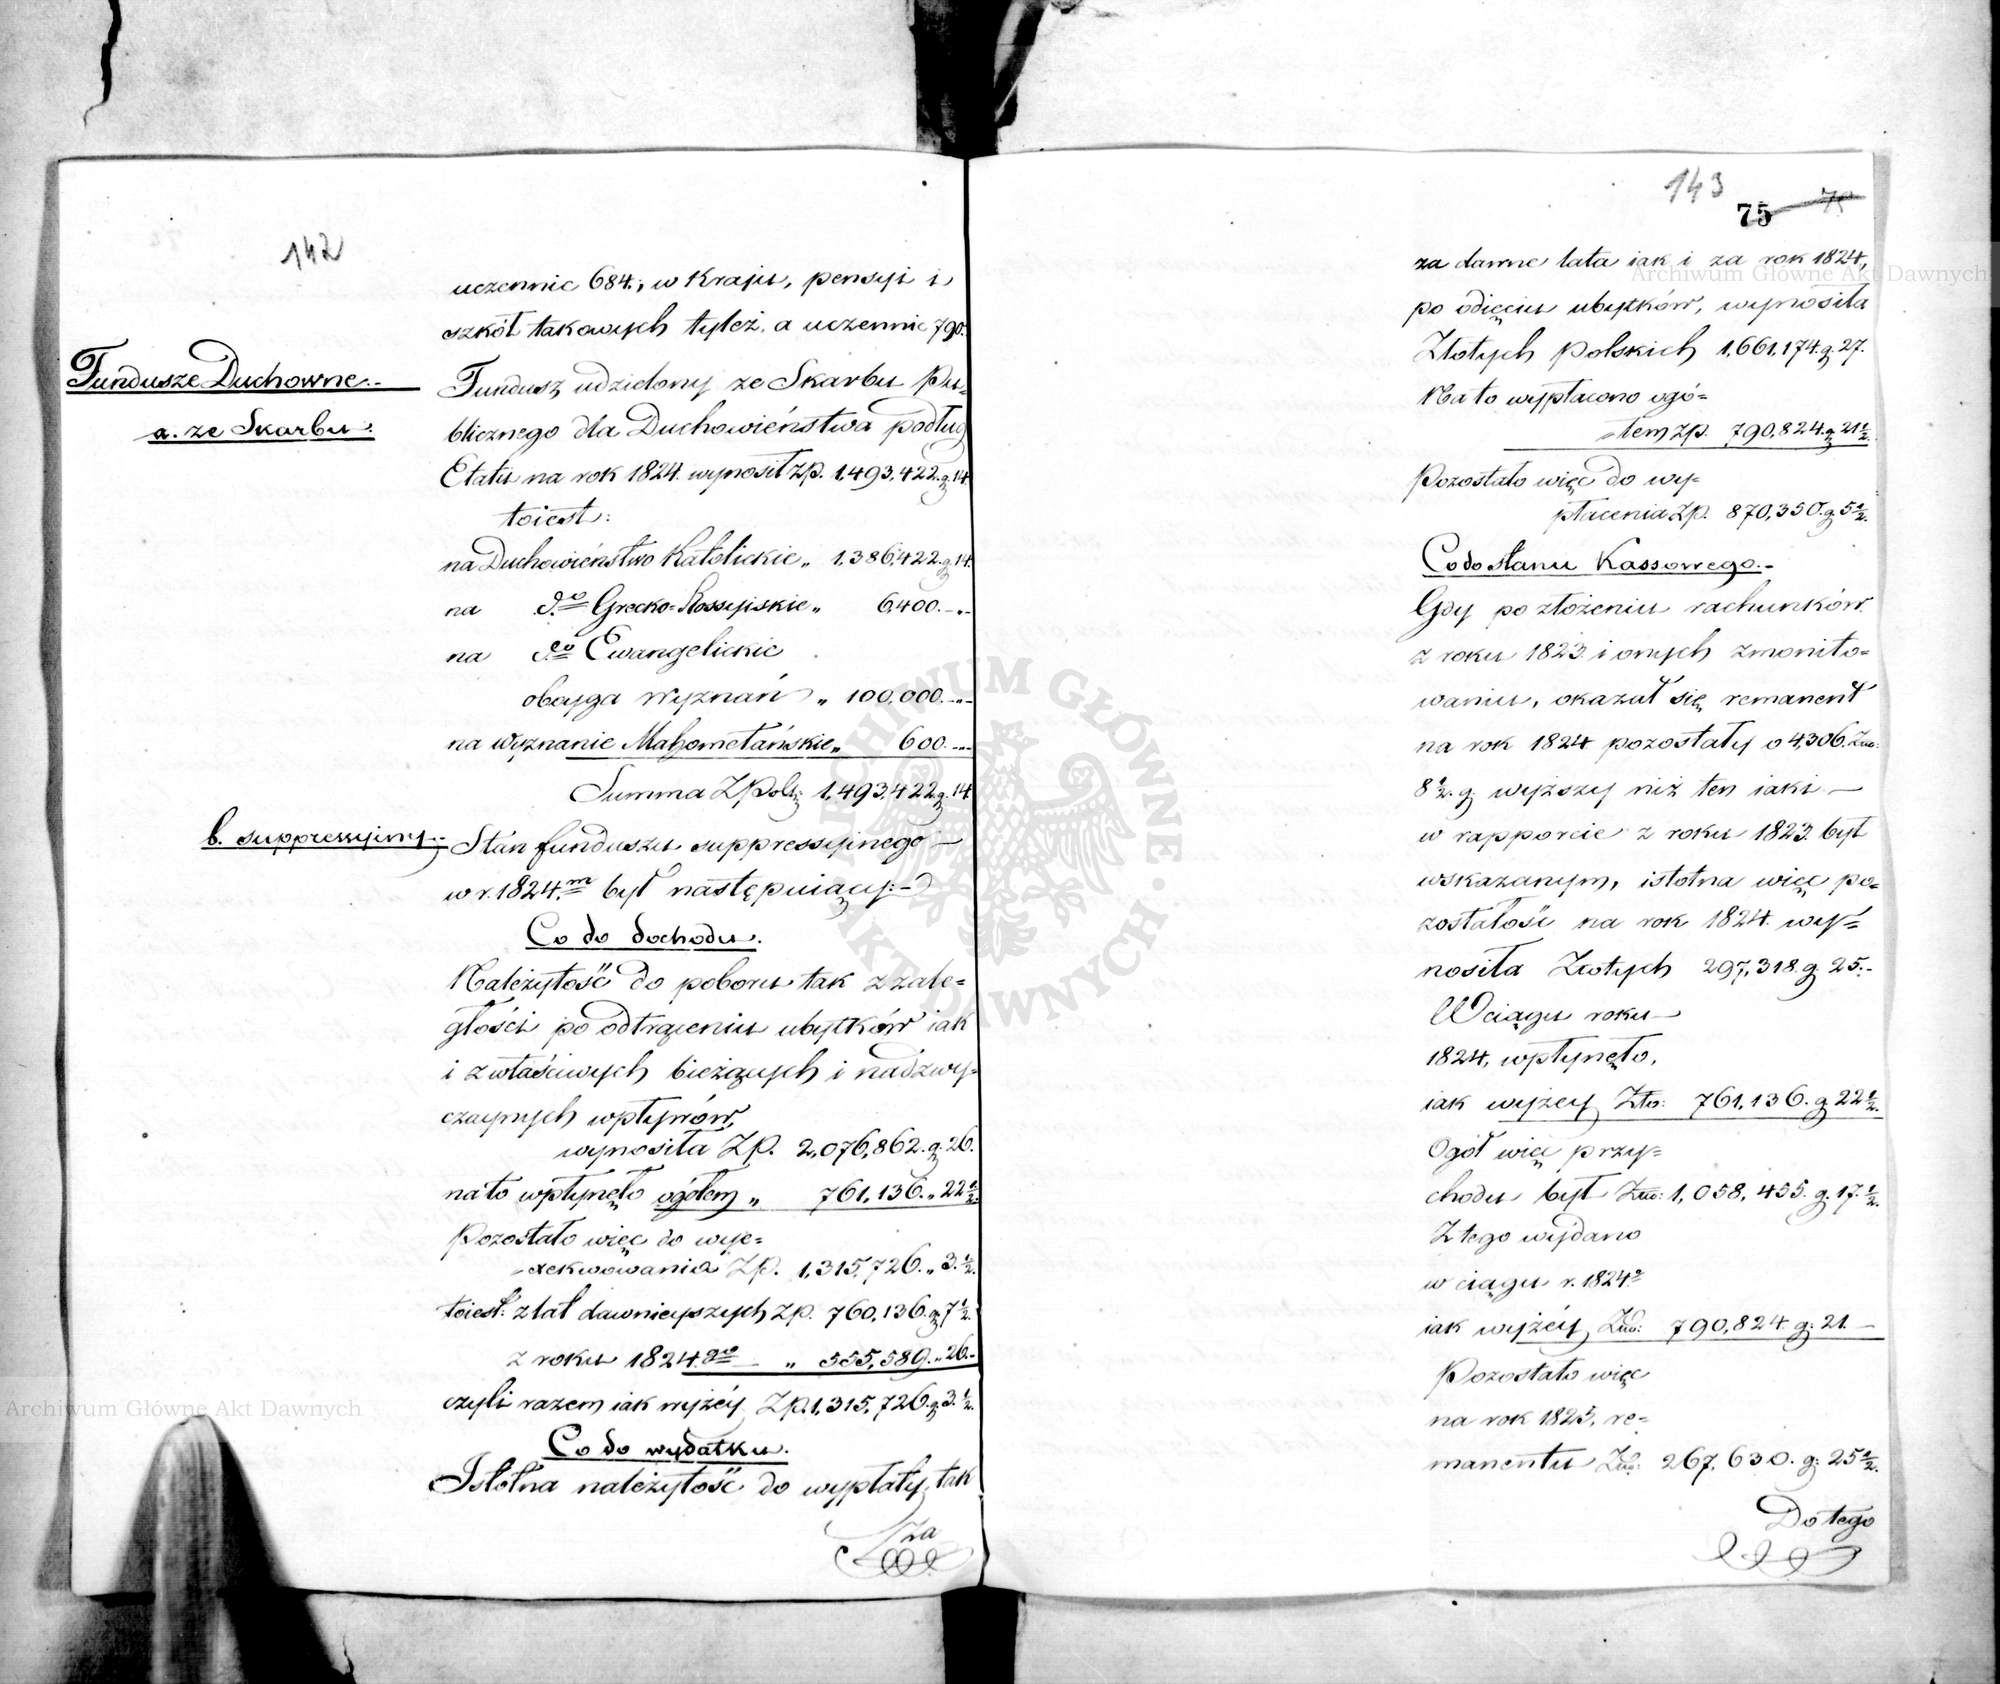 142
uczennic 684; w Kraju, pensyi i
szkół takowych tyleż, a uczennic 790.
Fundusze Duchowne.-
a. ze Skarbu:
Fundusz udzielony ze Skarbu Pu-
blicznego dla Duchowieństwa podług
Etatu na rok 1824. wynosił Zp. 1,493,422.g.14
toiest:
na Duchowieństwo Katolickie „ 1,386,422.g.14.
na do Grecko-Rossyiskie „ 6,400.-„-
na do Ewangelickie
obojga Wyznań „ 100,000.-„-
na wyznanie Mahometańskie „ 600.-„-
Summa ZPols: 1,493,422.g.14
b. suppressyjny.-
Stan funduszu suppressyjnego -
w r. 1824.m był następuiący:-
Co do dochodu.
Należytość do poboru tak z zale=
głości po odtrąceniu ubytków iak
i z właściwych bieżących i nadzwy-
czaynych wpływów,
wynosiła Zp. 2,076,862.g.26.
na to wpłynęło ogółem „ 761,136.„22½.
Pozostało więc do wye=
xekwowania Zp. 1,315,726.„3.½.
toiest: z lat dawnieyszych Zp. 760,136.g.7½.
z roku 1824.go - „ 555,589.„26.-
czyli razem iak wyżéy Zp.1,315,726.g.3.½.
Co do wydatku.
Istotna należytość do wypłaty, tak
za
143
75
za dawne lata iak i za rok 1824,
po odięciu ubytków, wynosiła
Złotych polskich 1,661,174.g.27.
Na to wypłacono ogó=
łem Zp. 790,824.g.21½.
Pozostało więc do wy=
płacenia Zp. 870,350.g.5½.
Co do stanu Kassowego.-
Gdy po złożeniu rachunków
z roku 1823. i onych zmonito=
waniu, okazał się remanent
na rok 1824 pozostały o 4,306.Zło:
8½.g. wyższy niż ten iaki -
w rapporcie z roku 1823. był
wskazanym, istotna więc po=
zostałość na rok 1824. wy=
nosiła Złotych 297,318.g.25.-
W ciągu roku -
1824, wpłynęło,
iak wyżey Zło: 761,136.g.22½.
Ogół więc przy=
chodu był Zło: 1,058,455.g.17.½.
Z tego wydano
w ciągu r. 1824o
iak wyżéy Zło: 790,824.g.21.-
Pozostało więc
na rok 1825, re=
manentu Zło: 267,630.g.25½.
Do tego
Archiwum Główne Akt Dawnych
Archiwum Główne Akt Dawnych
ARCHIWUM GŁÓWNE · AKT DAWNYCH ·